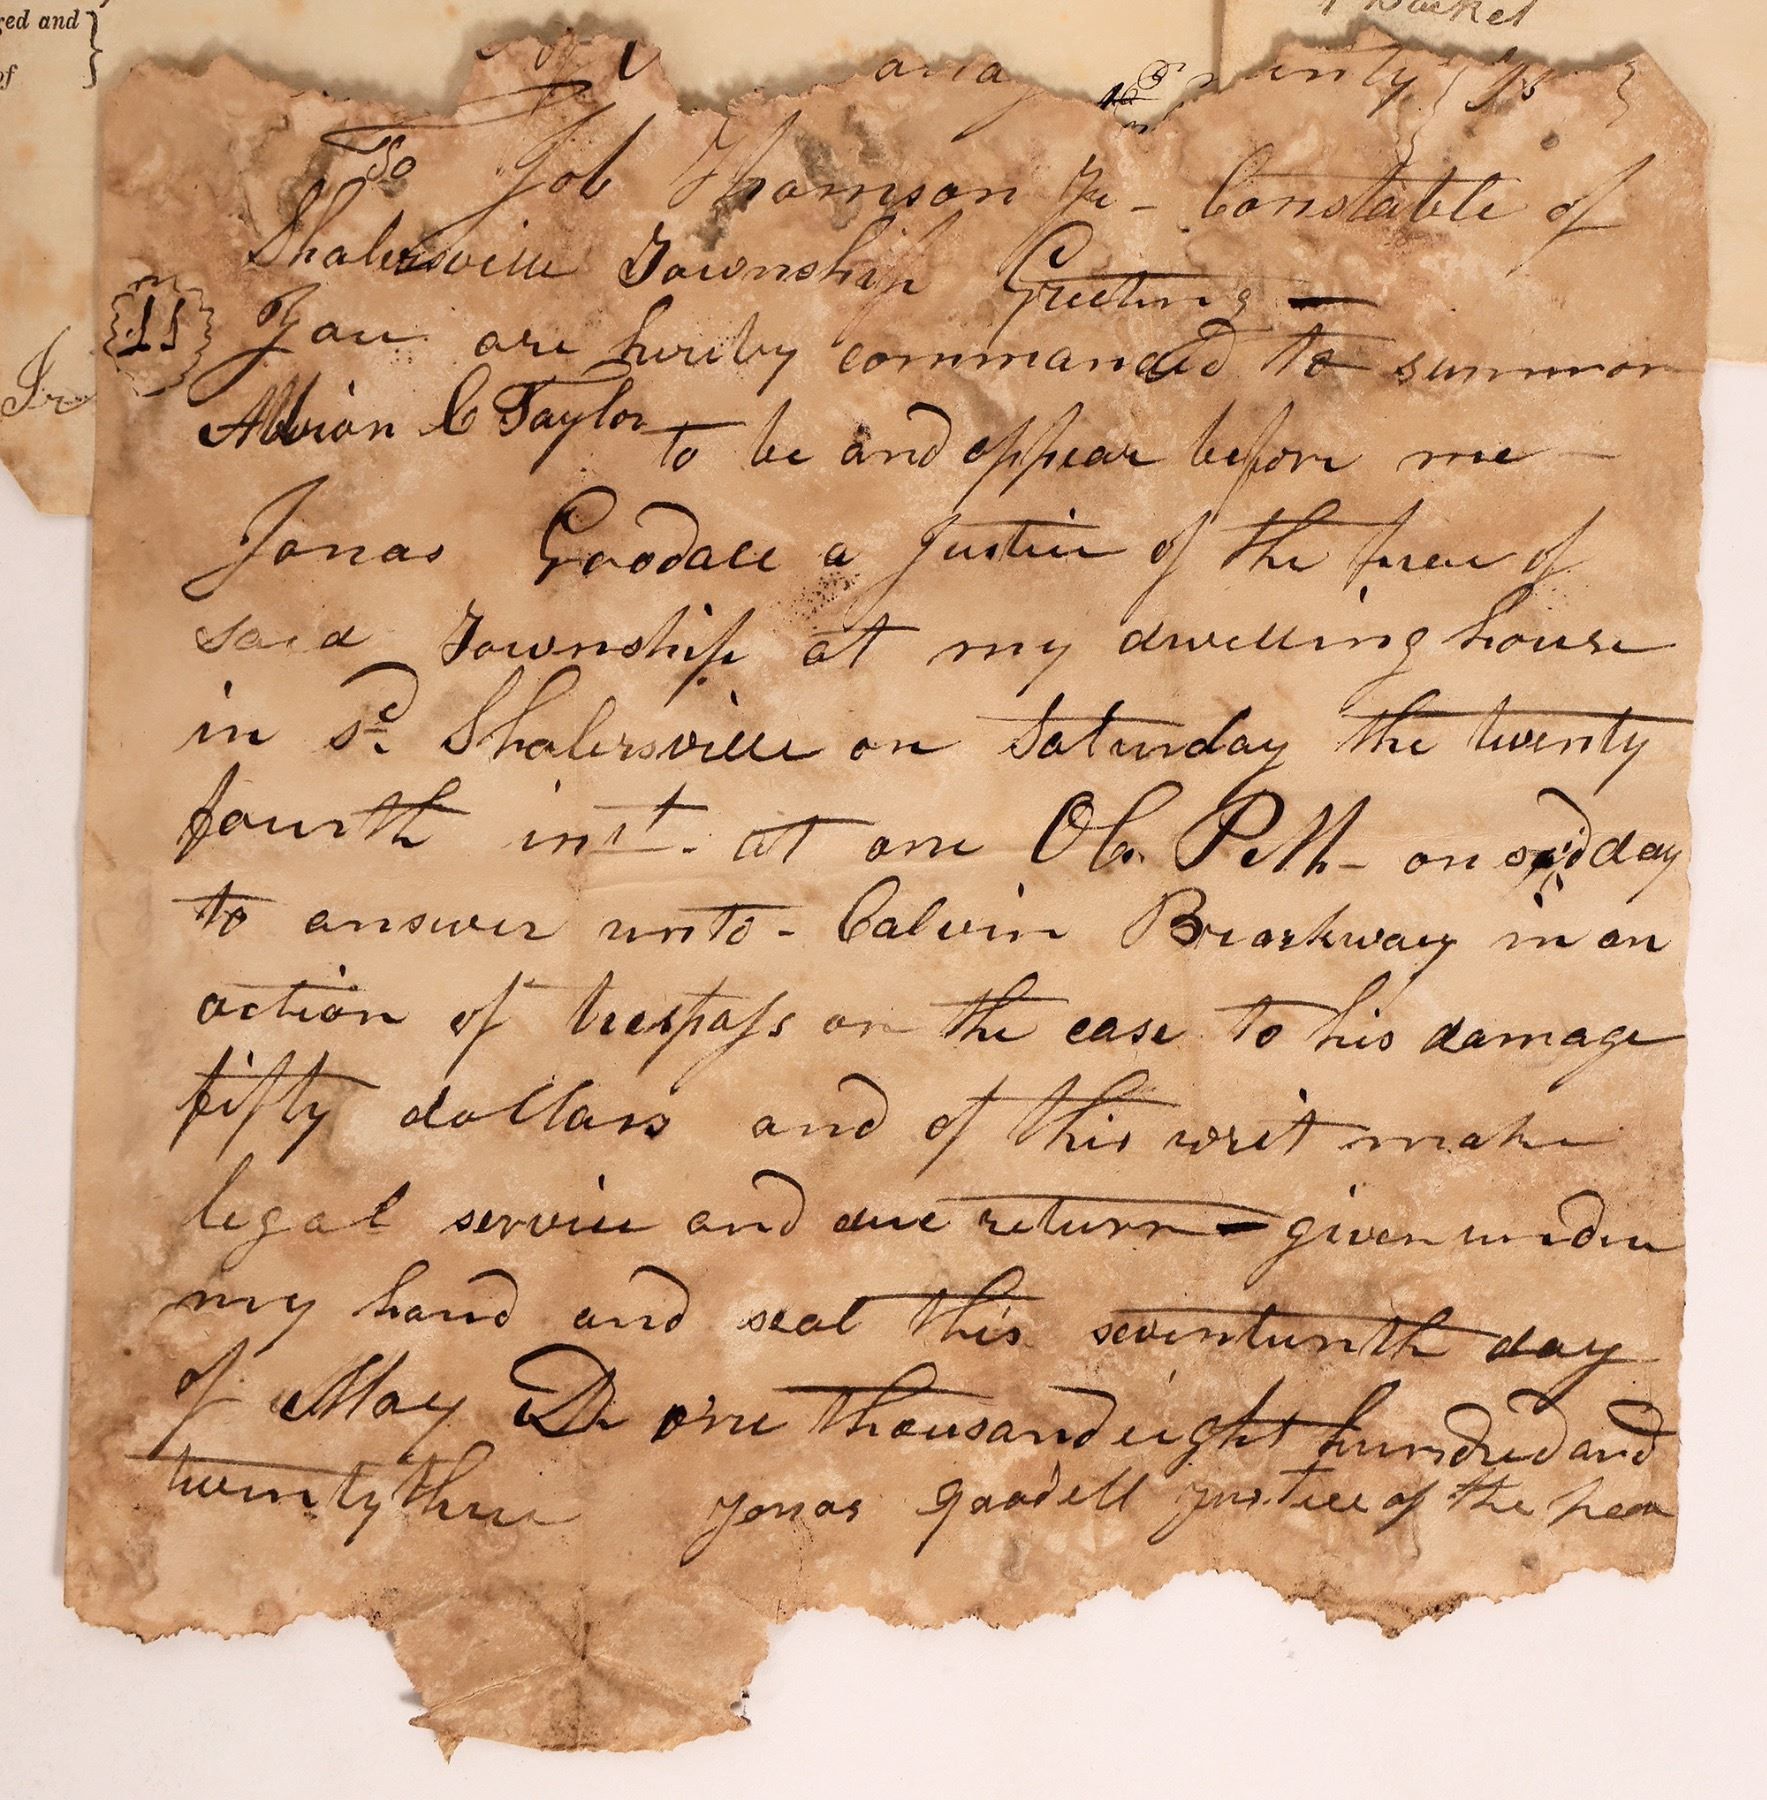 red and
of
Docket
Jr
unty } ss }
To Job Thomson Jr - Constable of
Shalersville Township Greeting -
11
You are hereby commanded to summon
Albion C Taylor to be and appear before me -
Jonas Goodale a Justice of the peace of
said Township at my dwelling house
in sd. Shalersville on Saturday the twenty
fourth inst. at one Oc. P M - on said day
to answer unto - Calvin Brockway in an
action of trespass on the case to his damage
fifty dollars and of this writ make
legal service and due return - given under
my hand and seal this seventeenth day
of May AD one thousand eight hundred and
twenty three Jonas goodell Justice of the peace